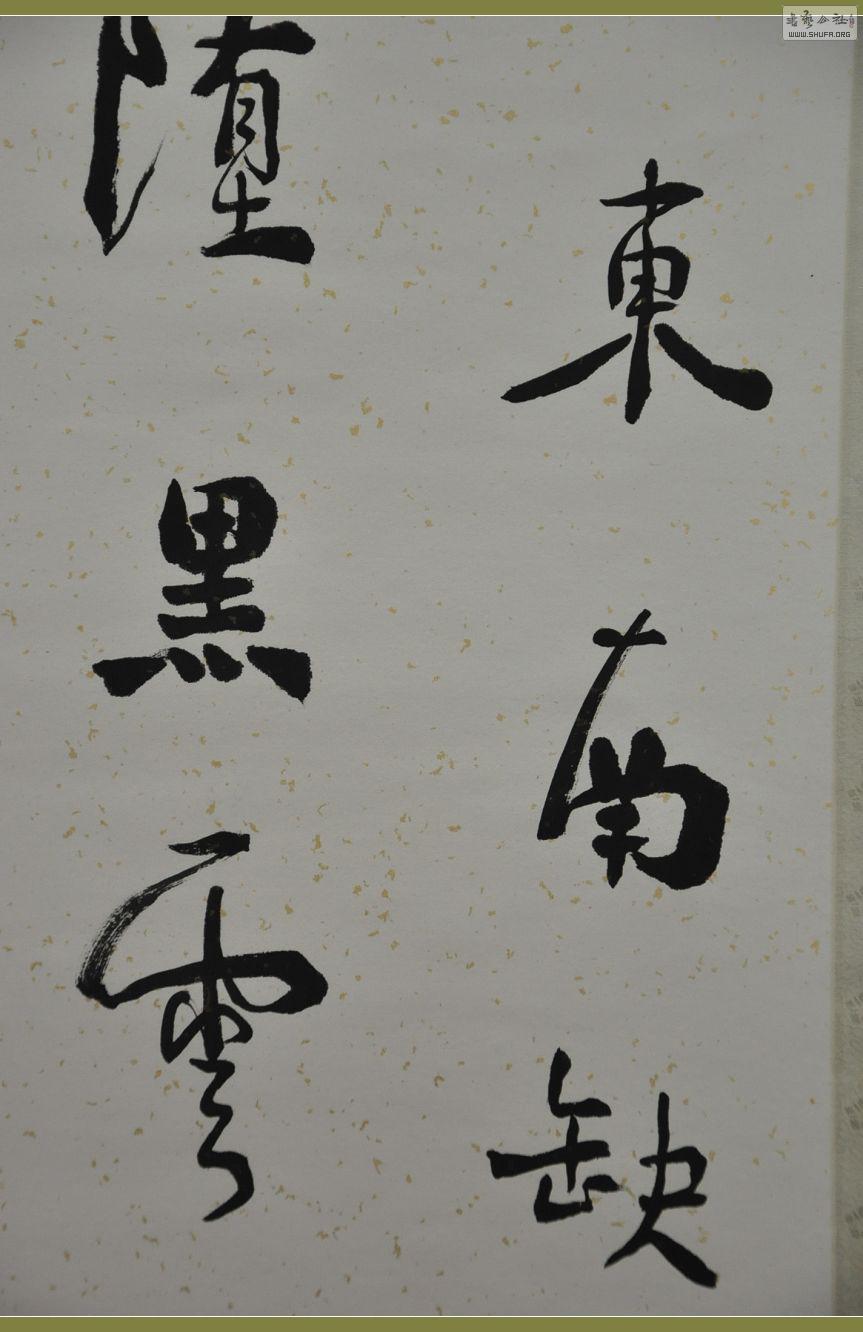 東南缺
堕黑雲
書藝公社
WWW.SHUFA.ORG